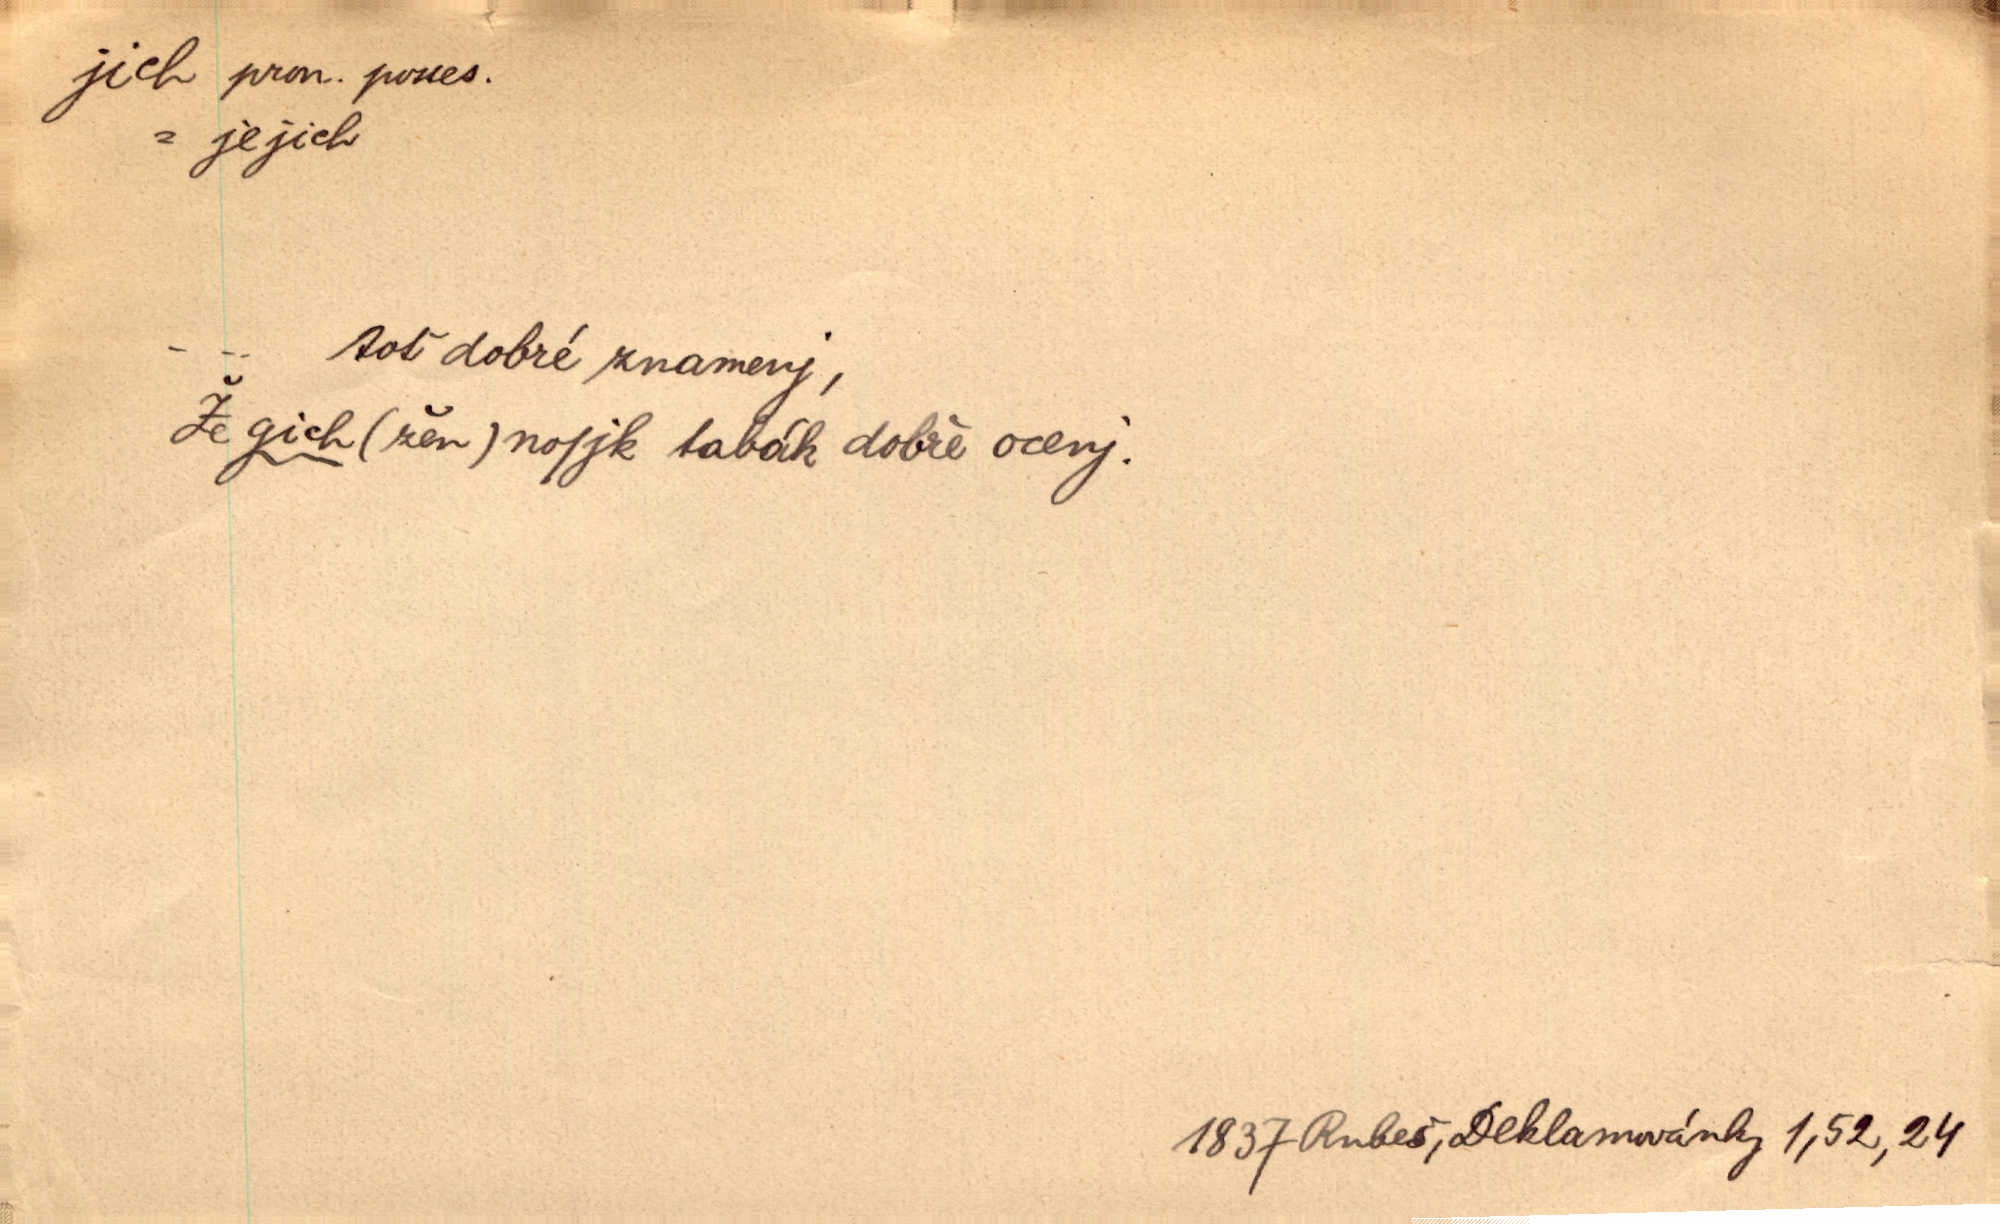 jich pron. posses.
= jejich
- - .. totě dobré znamenj,
Že gich (žen) nosjk tabák dobře ocenj.
1837 Rubeš, Deklamovánky 1,52,24